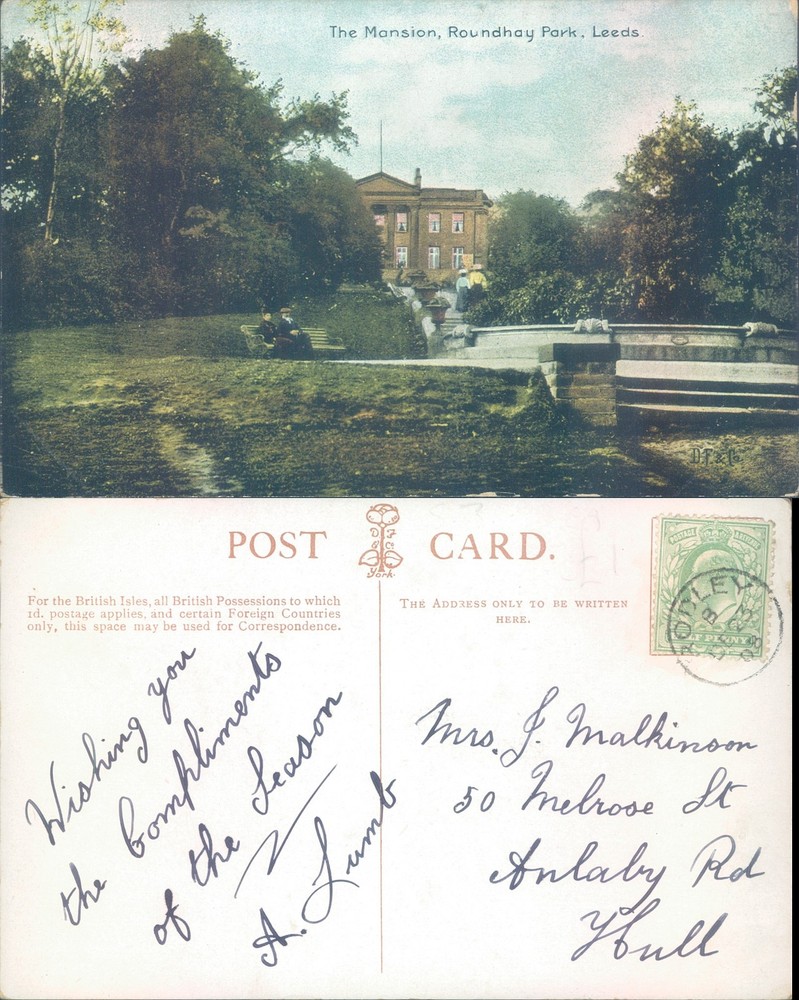 The Mansion, Roundhay Park. Leeds.
D.F. & Co.
POST CARD.
D F
& Co
York.
For the British Isles, all British Possessions to which
1d. postage applies, and certain Foreign Countries
only, this space may be used for Correspondence.
THE ADDRESS ONLY TO BE WRITTEN
HERE.
POSTAGE REVENUE
RODLEY
B
DE 23
08
Wishing you
the Compliments
of the Season
A. Lumb
Mrs. J. Malkinson
50 Melrose St
Anlaby Rd
Hull